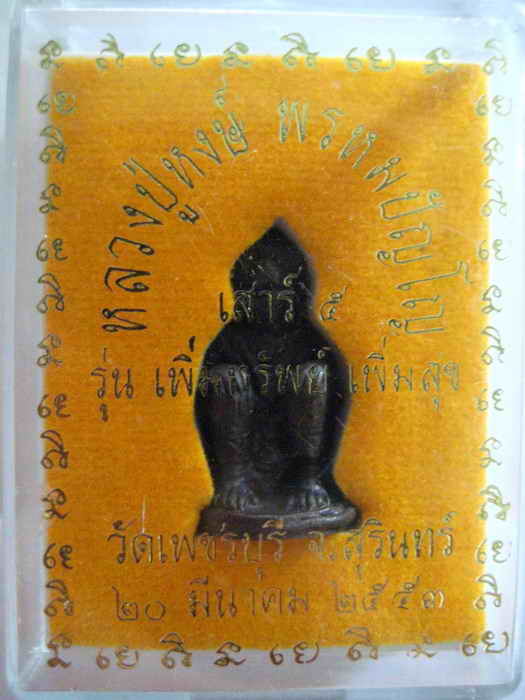 หลวงปู่หงษ์ พรหมปัญโญ
เสาร์ ๕
รุ่น เพิ่มทรัพย์ เพิ่มสุข
วัดเพชรบุรี จ.สุรินทร์
๒๐ มีนาคม ๒๕๕๓